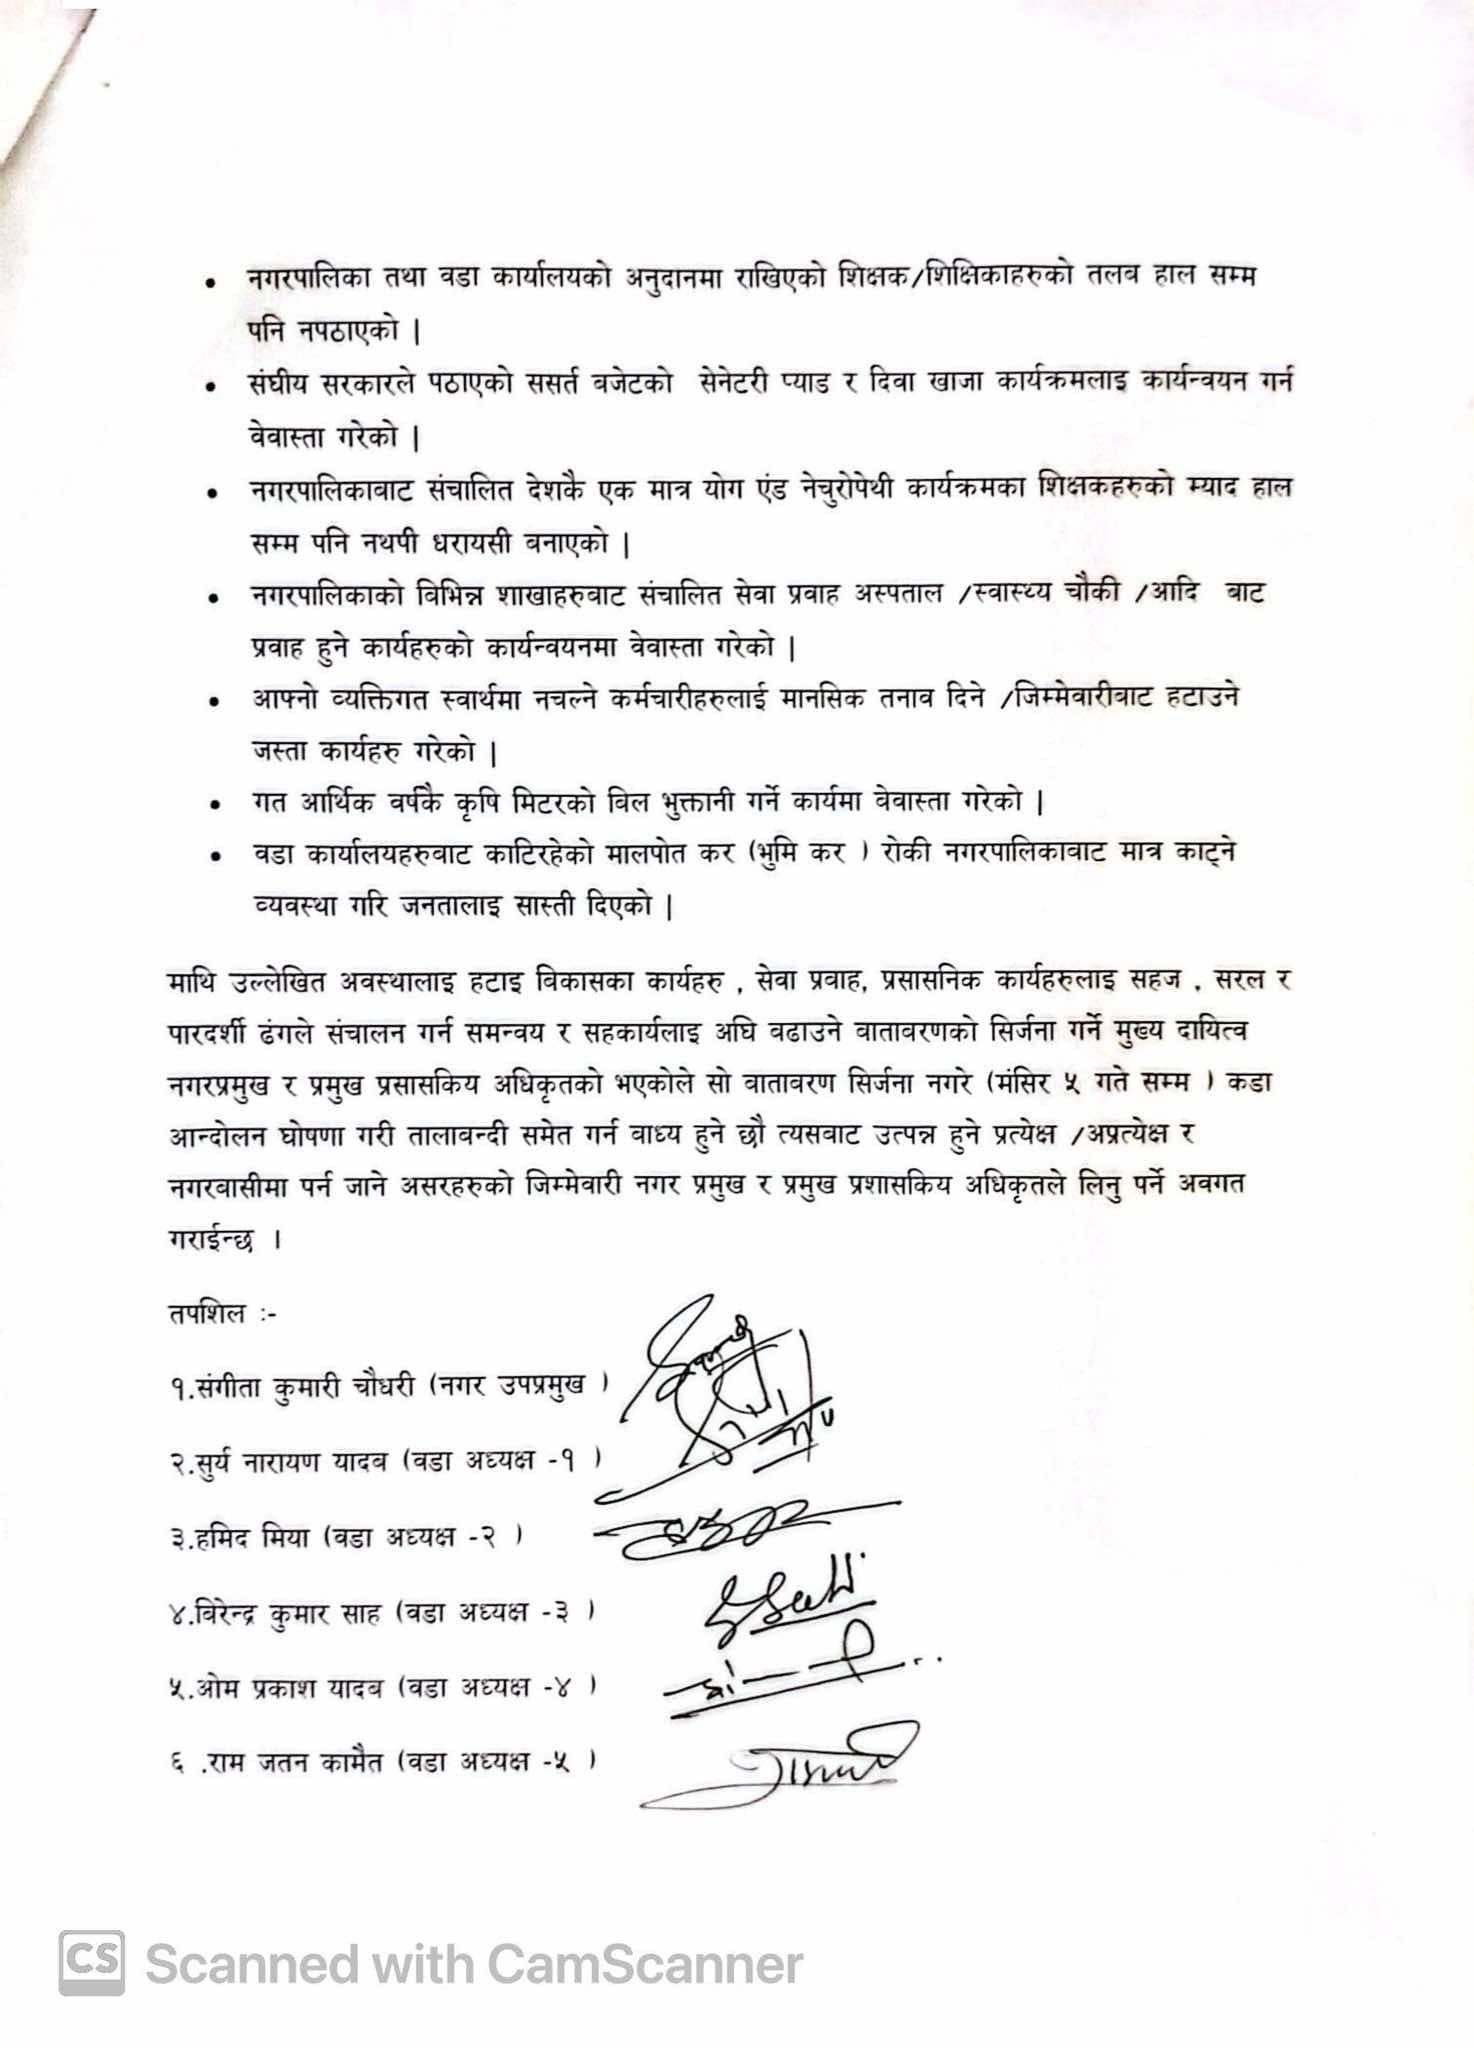 • नगरपालिका तथा वडा कार्यालयको अनुदानमा राखिएको शिक्षक/शिक्षिकाहरुको तलब हाल सम्म
पनि नपठाएको |
• संघीय सरकारले पठाएको ससर्त बजेटको सेनेटरी प्याड र दिवा खाजा कार्यक्रमलाइ कार्यन्वयन गर्न
वेवास्ता गरेको |
• नगरपालिकावाट संचालित देशकै एक मात्र योग एंड नेचुरोपेथी कार्यक्रमका शिक्षकहरुको म्याद हाल
सम्म पनि नथपी धरायसी बनाएको |
• नगरपालिकाको विभिन्न शाखाहरुवाट संचालित सेवा प्रवाह अस्पताल /स्वास्थ्य चौकी /आदि बाट
प्रवाह हुने कार्यहरुको कार्यन्वयनमा वेवास्ता गरेको |
• आफ्नो व्यक्तिगत स्वार्थमा नचल्ने कर्मचारीहरुलाई मानसिक तनाव दिने /जिम्मेवारीवाट हटाउने
जस्ता कार्यहरु गरेको |
• गत आर्थिक वर्षकै कृषि मिटरको विल भुक्तानी गर्ने कार्यमा वेवास्ता गरेको |
• वडा कार्यालयहरुवाट काटिरहेको मालपोत कर (भुमि कर ) रोकी नगरपालिकावाट मात्र काट्ने
व्यवस्था गरि जनतालाइ सास्ती दिएको |
माथि उल्लेखित अवस्थालाइ हटाइ विकासका कार्यहरु , सेवा प्रवाह, प्रसासनिक कार्यहरुलाइ सहज , सरल र
पारदर्शी ढंगले संचालन गर्न समन्वय र सहकार्यलाइ अघि वढाउने वातावरणको सिर्जना गर्ने मुख्य दायित्व
नगरप्रमुख र प्रमुख प्रसासकिय अधिकृतको भएकोले सो वातावरण सिर्जना नगरे (मंसिर ५ गते सम्म ) कडा
आन्दोलन घोषणा गरी तालावन्दी समेत गर्न वाध्य हुने छौ त्यसवाट उत्पन्न हुने प्रत्येक्ष /अप्रत्येक्ष र
नगरवासीमा पर्न जाने असरहरुको जिम्मेवारी नगर प्रमुख र प्रमुख प्रशासकिय अधिकृतले लिनु पर्ने अवगत
गराईन्छ ।
तपशिल :-
१.संगीता कुमारी चौधरी (नगर उपप्रमुख )
२.सुर्य नारायण यादव (वडा अध्यक्ष -१ )
३.हमिद मिया (वडा अध्यक्ष -२ )
४.विरेन्द्र कुमार साह (वडा अध्यक्ष -३ )
५.ओम प्रकाश यादव (वडा अध्यक्ष -४ )
६ .राम जतन कामैत (वडा अध्यक्ष -५ )
CS Scanned with CamScanner